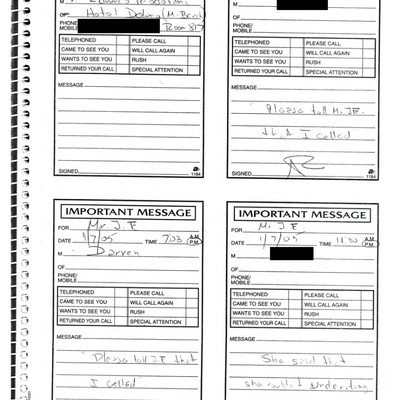 OF Hotel Delano (M. Beach)
PHONE/
MOBILE Room 817
TELEPHONED PLEASE CALL
CAME TO SEE YOU WILL CALL AGAIN
WANTS TO SEE YOU RUSH
RETURNED YOUR CALL SPECIAL ATTENTION
MESSAGE
SIGNED 1184
M
OF
PHONE/
MOBILE
TELEPHONED PLEASE CALL
CAME TO SEE YOU WILL CALL AGAIN
WANTS TO SEE YOU RUSH
RETURNED YOUR CALL SPECIAL ATTENTION
MESSAGE
Please tell M. JE.
that I called
SIGNED 1184
IMPORTANT MESSAGE
FOR Mr J.E
DATE 1/7/05 TIME 7:03 A.M. P.M.
M Darren
OF
PHONE/
MOBILE
TELEPHONED PLEASE CALL
CAME TO SEE YOU WILL CALL AGAIN
WANTS TO SEE YOU RUSH
RETURNED YOUR CALL SPECIAL ATTENTION
MESSAGE
Please tell J.E that
I called
IMPORTANT MESSAGE
FOR M. J.E
DATE 1/7/05 TIME 11:30 A.M. P.M.
M
OF
PHONE/
MOBILE
TELEPHONED PLEASE CALL
CAME TO SEE YOU WILL CALL AGAIN
WANTS TO SEE YOU RUSH
RETURNED YOUR CALL SPECIAL ATTENTION
MESSAGE
She said that
she